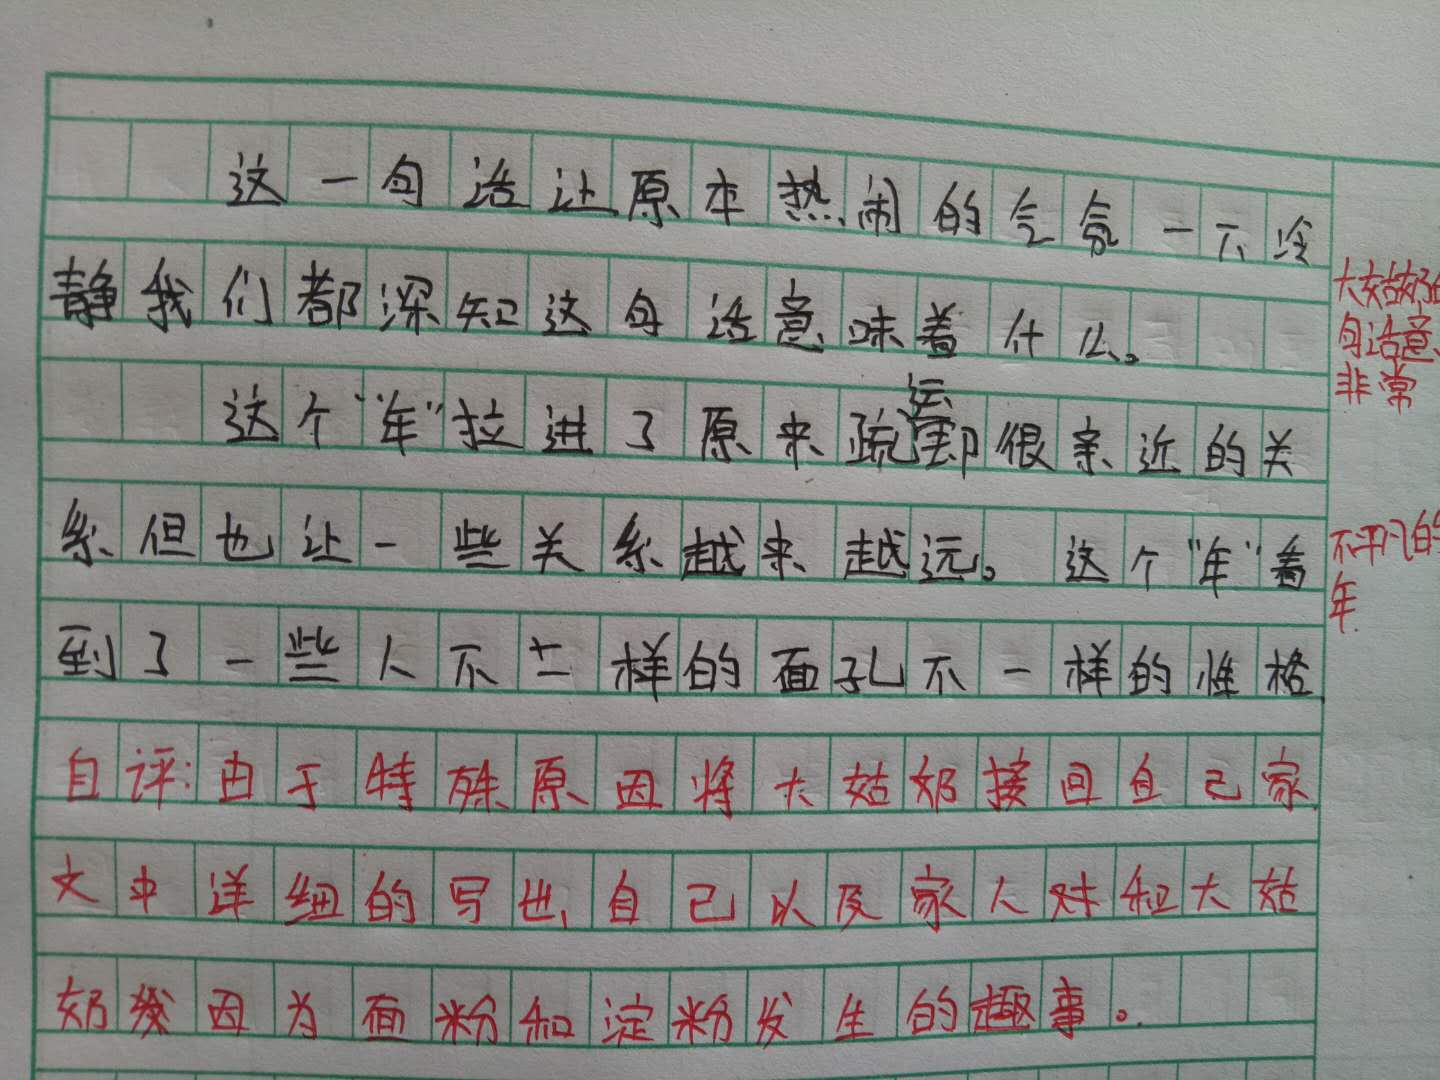 这一句话让原本热闹的气氛一下冷
静我们都深知这句话意味着什么。
这个“年”拉进了原来疏远却很亲近的关
系但也让一些关系越来越远。这个“年”看
到了一些人不一样的面孔不一样的性格
自评:由于特殊原因将大姑奶接回自己家
文中详细的写出自己以及家人对和大姑
奶发因为面粉和淀粉发生的趣事。
大姑奶
句话意
非常
不平凡的
年